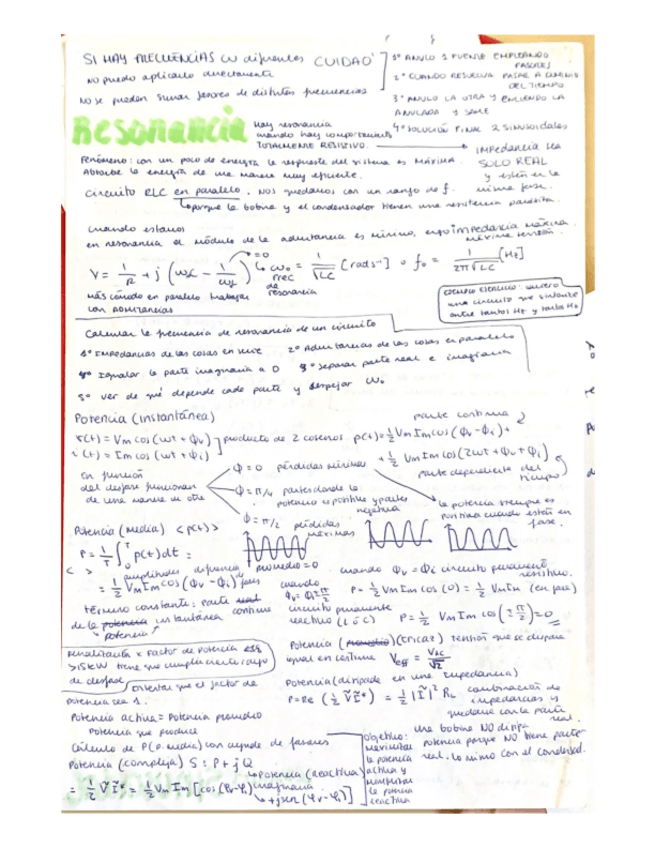 SI HAY FRECUENCIAS CON diferentes CUIDADO
no puedo aplicarlo directamente
No se pueden sumar fasores de distintas frecuencias
1º ANULO 1 FUENTE EMPLEANDO FASORES
2º CUANDO RESUELVA PASAR A DOMINIO DEL TIEMPO
3º ANULO LA OTRA Y ENCIENDO LA ANULADA Y SUME
4º SOLUCIÓN FINAL 2 SINUSOIDALES
Resonancia
Hay resonancia
cuando hay comportamiento
TOTALMENTE RESISTIVO.
IMPEDANCIA SEA
SOLO REAL
y estén en la
misma fase.
Fenómeno: con un poco de energía la respuesta del sistema es MÁXIMA.
Absorbe la energía de una manera muy eficiente.
Circuito RLC en paralelo. Nos quedamos con un rango de f.
porque la bobina y el condensador tienen una resistencia parásita.
Cuando estamos
en resonancia el módulo de la admitancia es mínimo, ergo impedancia máxima.
máxima tensión.
Y = 1/R + j (ωC - 1/ωL) =0 ω₀ = 1/√LC [rad s⁻¹] o f₀ = 1/2π√LC [Hz]
frec de resonancia
más cómodo en paralelo trabajar
con admitancias
EJEMPLO EJERCICIO: quiero
una circuito que sintonice
entre tantos Hz y tantos Hz
Calcular la frecuencia de resonancia de un circuito
1º Impedancias de las cosas en serie 2º Admitancias de las cosas en paralelo
3º Separar parte real e imaginaria
4º Igualar la parte imaginaria a 0
5º ver de qué depende cada parte y despejar ω₀
Potencia (instantánea)
parte continua
v(t) = Vm cos (ωt + φv) producto de 2 cosenos p(t) = 1/2 Vm Im cos (φv - φi) +
i(t) = Im cos (ωt + φi)
+ 1/2 Vm Im cos (2ωt + φv + φi)
parte dependiente del tiempo
En función
del desfase funcionan
de una manera u otra
φ = 0 pérdidas mínimas
φ = π/4 partes donde la
potencia es positiva y partes
negativa
φ = π/2 pérdidas
máximas
la potencia siempre es
positiva cuando estén en
fase.
Potencia (media) <p(t)>
P = 1/T ∫₀ᵀ p(t) dt =
< > amplitudes diferencia de fases
promedio = 0
= 1/2 Vm Im cos (φv - φi)
cuando φv = φi circuito puramente
resistivo.
P = 1/2 Vm Im cos (0) = 1/2 Vm Im (en fase)
cuando
φv = φi ± π/2
término constante: parte continua
de la potencia instantánea
potencia
circuito puramente
reactivo (L o C) P = 1/2 Vm Im cos (± π/2) = 0
Penalización x Factor de potencia
>15kW tiene que cumplir cierto
de desfase
Intentar que el factor de
potencia sea 1.
Potencia (promedio) (Eficaz) tensión que se disipa
igual en continua Veff = VAC/√2
Potencia (disipada en una impedancia)
P = Re (1/2 V I*) = 1/2 |I|² RL combinación de
impedancias y
quedarse con la parte
real.
Potencia activa = Potencia promedio
Potencia que produce
Cálculo de P (P. media) con ayuda de fasores
Potencia (compleja) S: P + jQ
Potencia (reactiva)
imaginaria
= 1/2 V I* = 1/2 Vm Im [cos (φv-φi)
+ j sen (φv - φi)]
Objetivo:
maximizar
la potencia
activa y
minimizar
la potencia
reactiva
Una bobina NO disipa
potencia porque NO tiene parte
real. Lo mismo con el condensad.